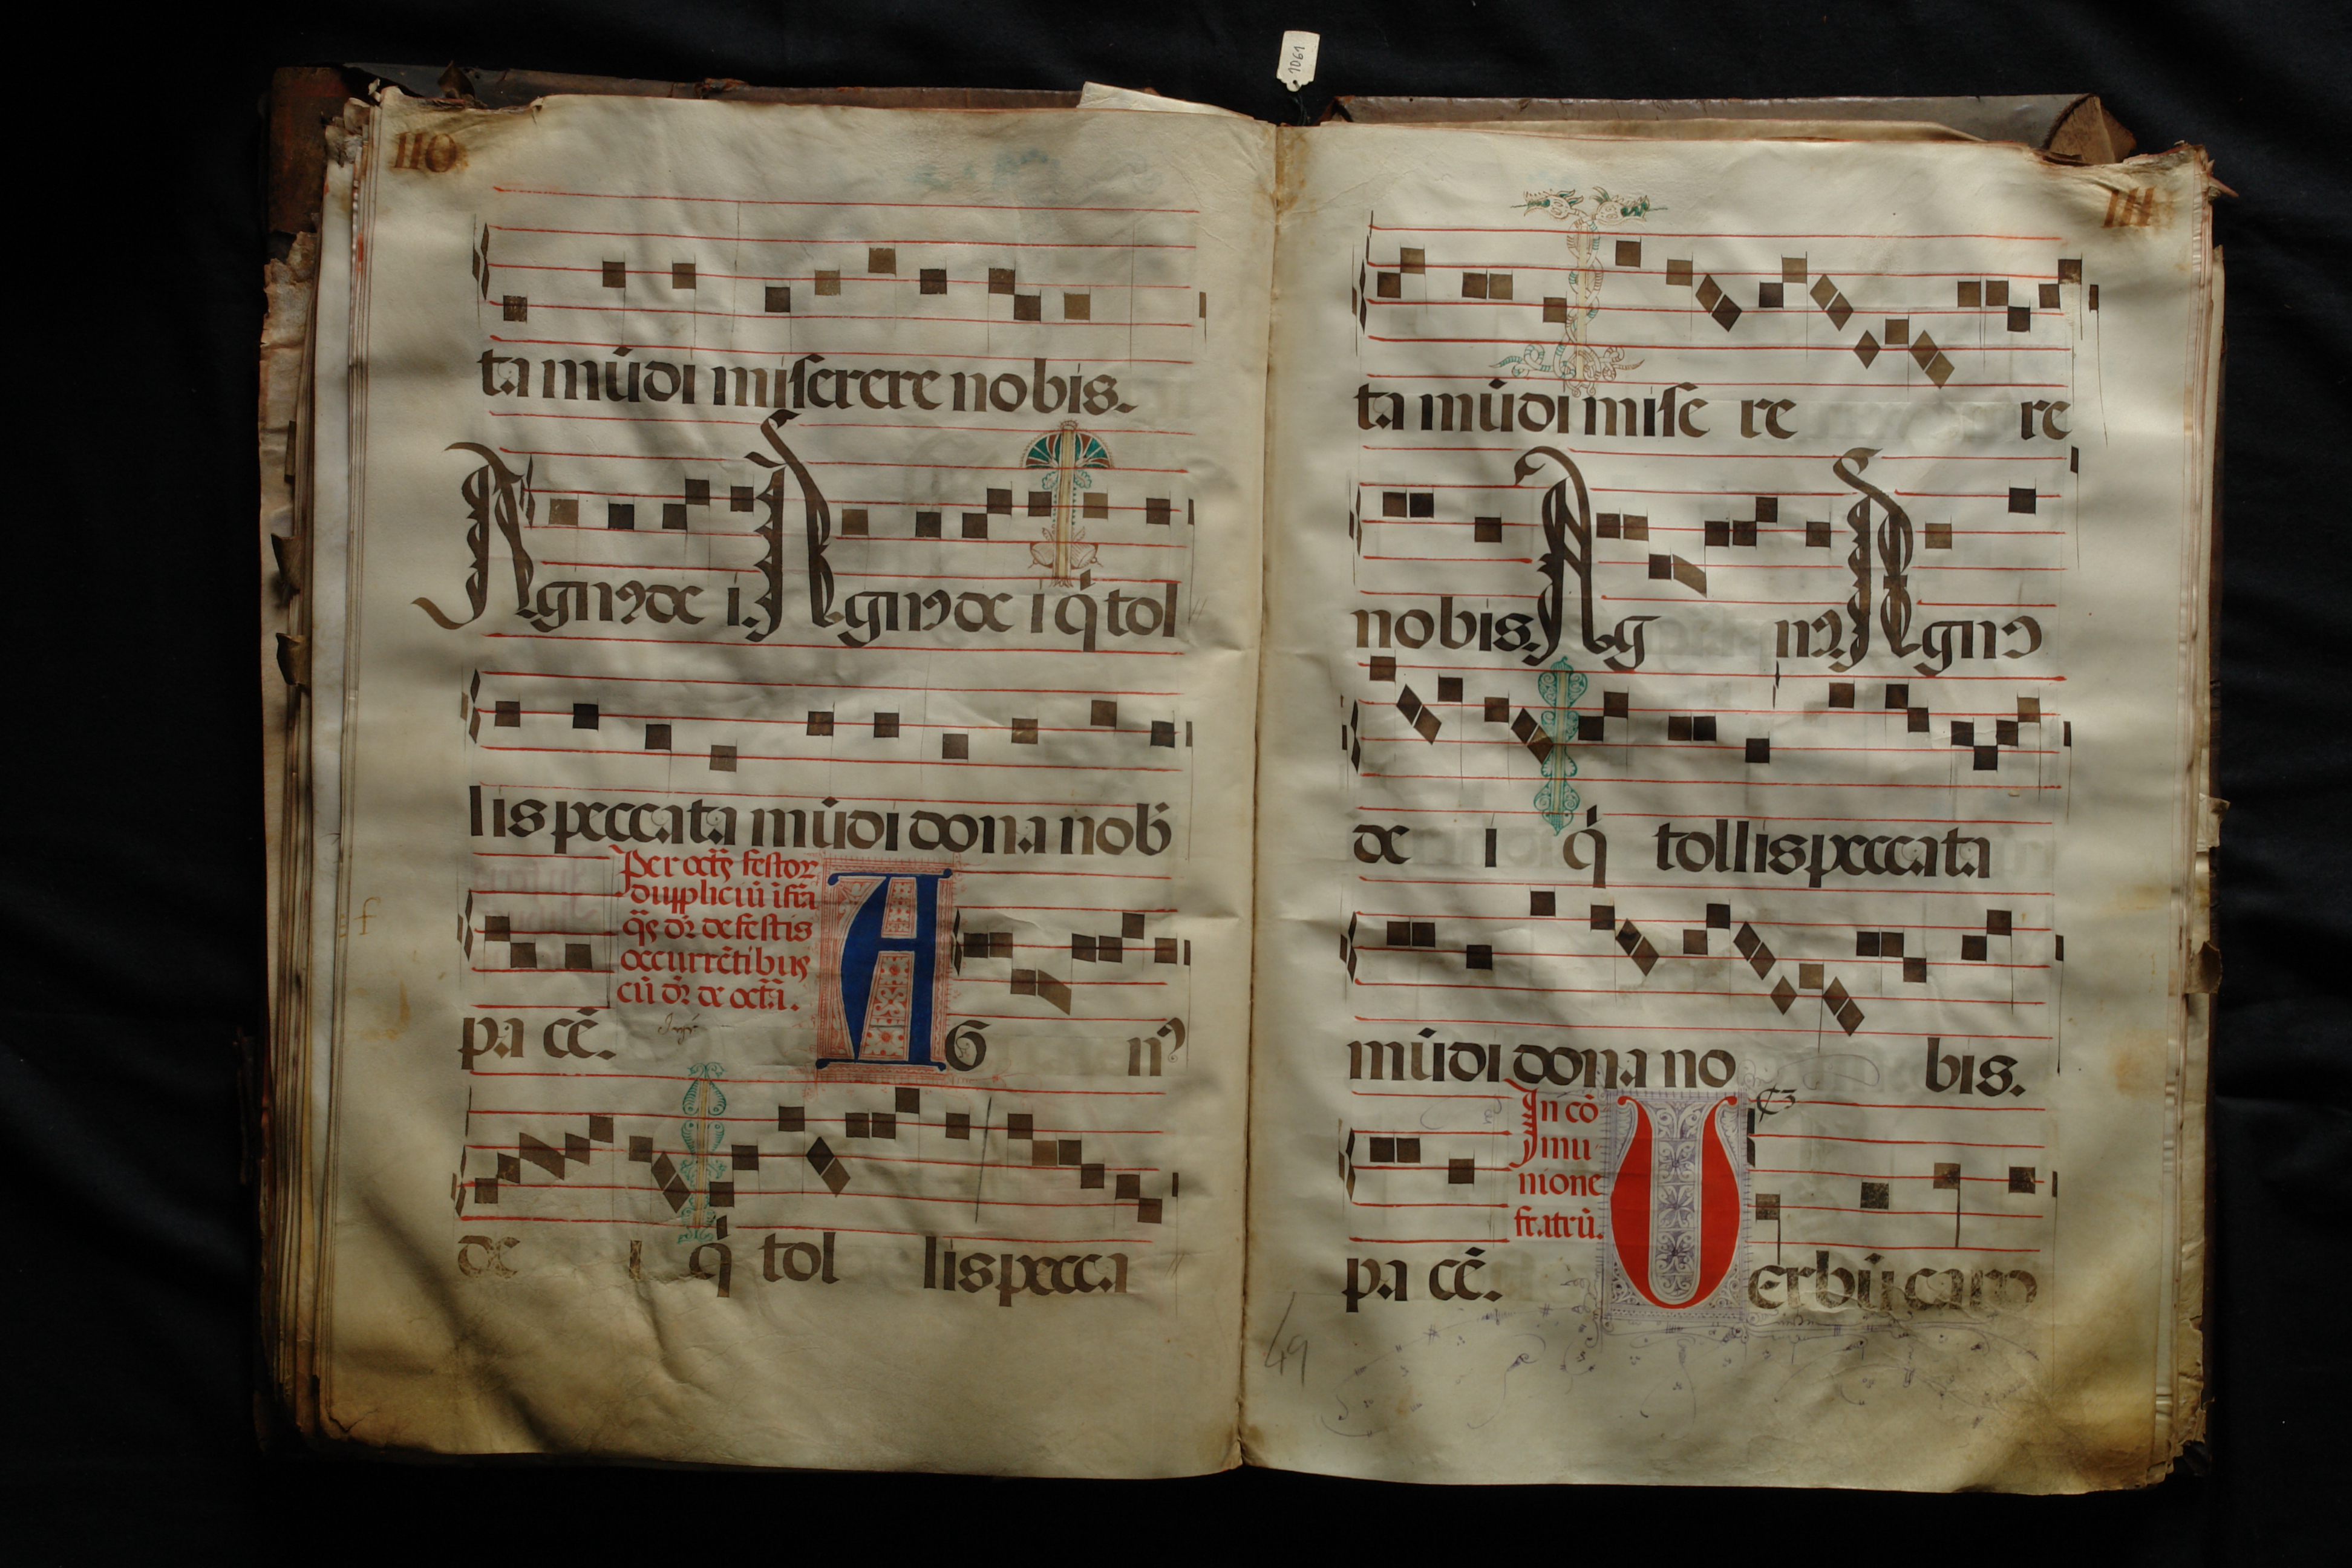 1061
110
ta mūdi miserere nobis.
Agnꝰ de i. Agnꝰ de i q̇ tol
lis peccata mūdi dona nob̄
Per octꝭ festoꝝ
dupliciū ifra
qͣs dr̄ de festis
occurrētibus
cū dr̄ de octa.
pa cē. AG nꝰ
de i q̇ tol lis pecca
111
ta mūdi mise re re
nobis. Ag nꝰ. Agnꝰ
de i q̇ tollis peccata
mūdi dona no bis.
In cō
mu
nione
fratrū.
pa cē. Uerbū caro
49